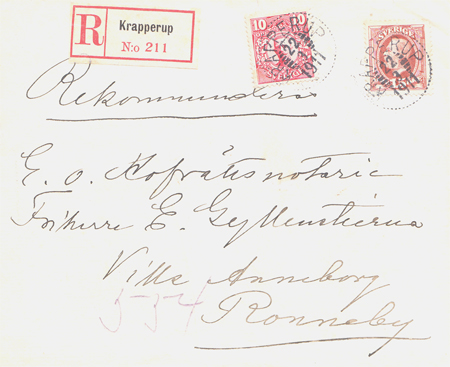 R
Krapperup
N:o 211
10 10
KRAPPERUP
22
1911
SVERIGE
KRAPPERUP
22
1911
Rekommenderas
E. o. Hofrättsnotarie
Friherre E. Gyllenstierna
Villa Anneborg
5-54
Ronneby